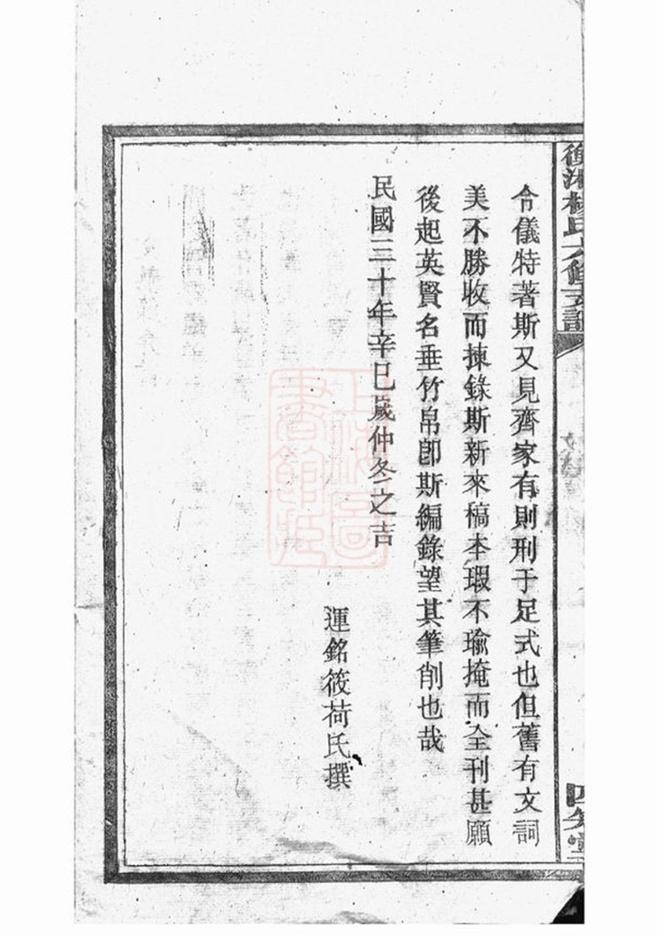 衡湘楊氏六修支譜
令儀特著斯又見齊家有則刑于足式也但舊有文詞
美不勝收而揀錄斯新來稿本瑕不瑜掩而全刊甚願
後起英賢名垂竹帛卽斯編錄望其筆削也哉
民國三十年辛巳歲仲冬之吉
運銘筱荷氏撰
四知堂